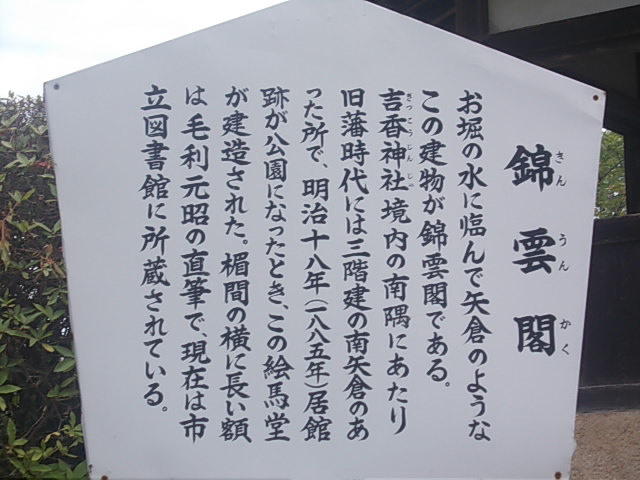 錦雲閣
きんうんかく
お堀の水に臨んで矢倉のような
この建物が錦雲閣である。
吉香神社境内の南隅にあたり
きっこうじんじゃ
旧藩時代には三階建の南矢倉のあ
った所で、明治十八年(一八八五年)居館
跡が公園になったとき、この絵馬堂
が建造された。楣間の横に長い額
は毛利元昭の直筆で、現在は市
立図書館に所蔵されている。